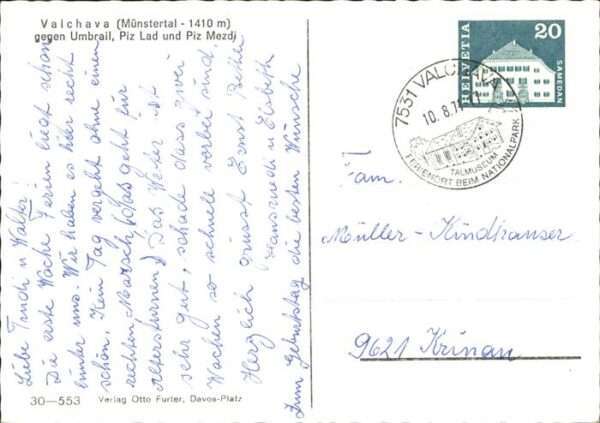 Valchava (Münstertal - 1410 m)
gegen Umbrail, Piz Lad und Piz Mezdi
Liebe Trudi u Walter!
Die erste Woche Ferien liegt schon
hinter uns. Wir haben es hier recht
schön. Kein Tag vergeht ohne einen
rechten Marsch, (das geht für
Altersturnen) Das Wetter ist
sehr gut, schade dass zwei
Wochen so schnelle vorbei sind.
Herzlich grüsst Ernst
Hansruedi u Elsbeth
Zum Geburtstag die besten Wünsche
30—553 Verlag Otto Furter, Davos-Platz
HELVETIA
20
SAMEDAN
7531 VALCHAVA
10.8.7
TALMUSEUM
FERIENORT BEIM NATIONALPARK
Fam.
Müller-Kindhauser
9621 Krinau